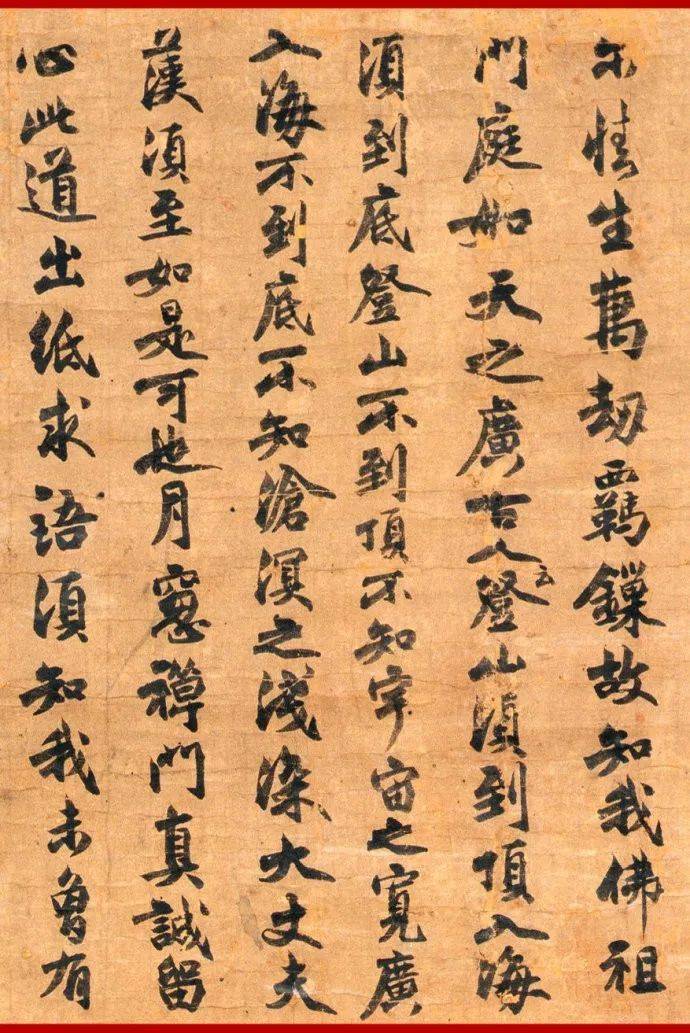 尒情生萬劫羈鏁故知我佛祖
門庭如天之廣古人云登山須到頂入海
須到底登山不到頂不知宇宙之寬廣
入海不到底不知滄溟之淺深大丈夫
漢須至如是可也月窓禅門真誠留
心此道出紙求語須知我未曾有